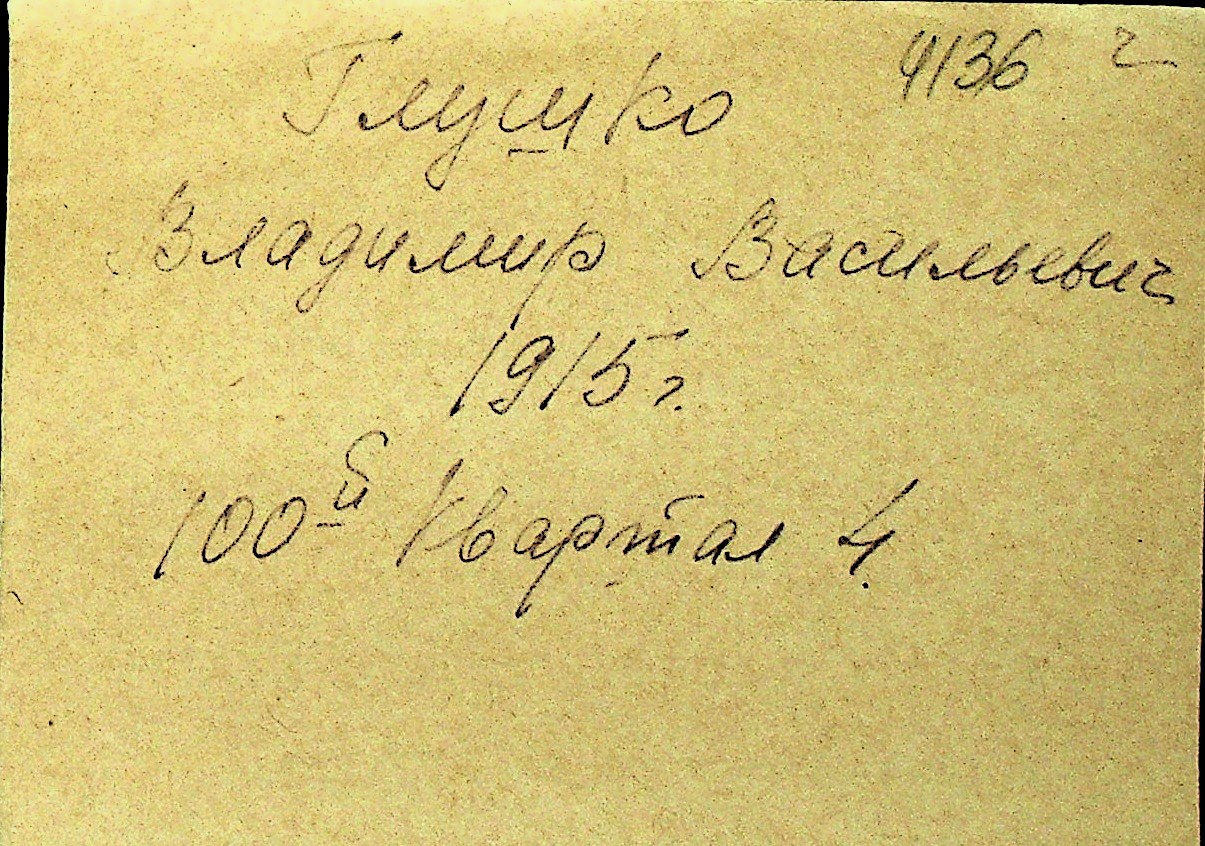 4136 г
Глушко
Владимир Васильевич
1915 г.
100й квартал 4.